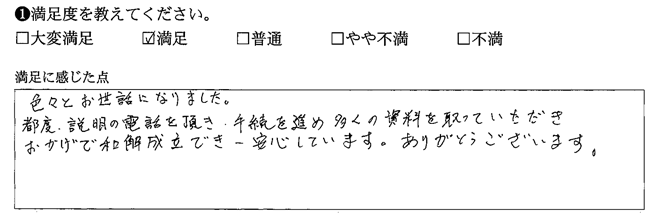 ❶満足度を教えてください。
□大変満足 ☑満足 □普通 □やや不満 □不満
満足に感じた点
色々とお世話になりました。
都度、説明の電話を頂き、手続を進め多くの資料を取っていただき
おかげで和解成立でき一安心しています。ありがとうございます。